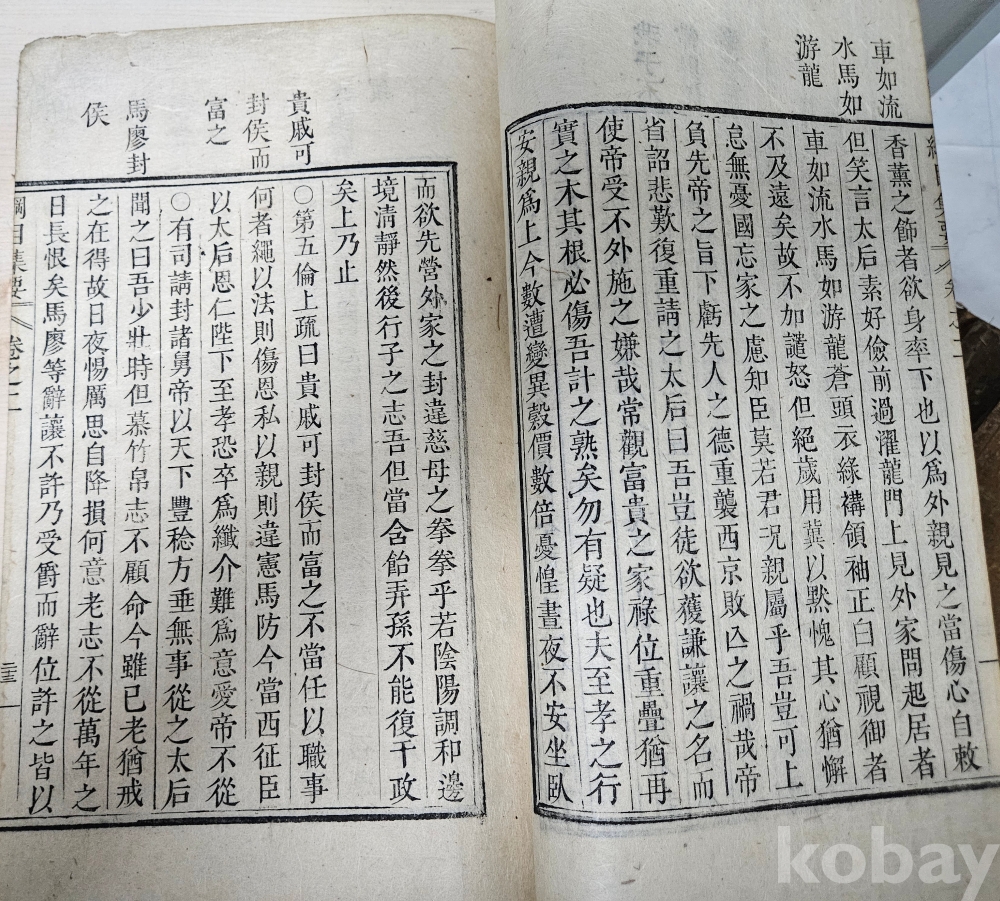 車如流
水馬如
游龍
香薰之飾者欲身率下也以爲外親見之當傷心自敕
但笑言太后素好儉前過濯龍門上見外家問起居者
車如流水馬如游龍蒼頭衣綠褠領袖正白顧視御者
不及遠矣故不加譴怒但絕歲用冀以默愧其心猶懈
怠無憂國忘家之慮知臣莫若君況親屬乎吾豈可上
負先帝之旨下虧先人之德重襲西京敗亾之禍哉帝
省詔悲歎復重請之太后曰吾豈徒欲獲謙讓之名而
使帝受不外施之嫌哉常觀富貴之家祿位重疊猶再
實之木其根必傷吾計之熟矣勿有疑也夫至孝之行
安親爲上今數遭變異穀價數倍憂惶晝夜不安坐臥
貴戚可
封侯而
富之
馬廖封
侯
而欲先營外家之封違慈母之拳拳乎若陰陽調和邊
境清靜然後行子之志吾但當含飴弄孫不能復干政
矣上乃止
○第五倫上疏曰貴戚可封侯而富之不當任以職事
何者繩以法則傷恩私以親則違憲馬防今當西征臣
以太后恩仁陛下至孝恐卒爲纖介難爲意愛帝不從
○有司請封諸舅帝以天下豐稔方垂無事從之太后
聞之曰吾少壯時但慕竹帛志不顧命今雖已老猶戒
之在得故日夜惕厲思自降損何意老志不從萬年之
日長恨矣馬廖等辭讓不許乃受爵而辭位許之皆以
綱目集要 卷之二
kobay